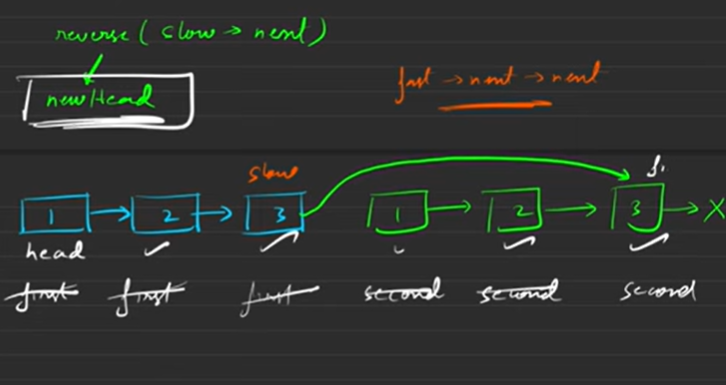 reverse ( slow → next )
newHead
fast → next → next
slow
f.
1 → 2 → 3 1 → 2 → 3 → X
head
first first first second second second